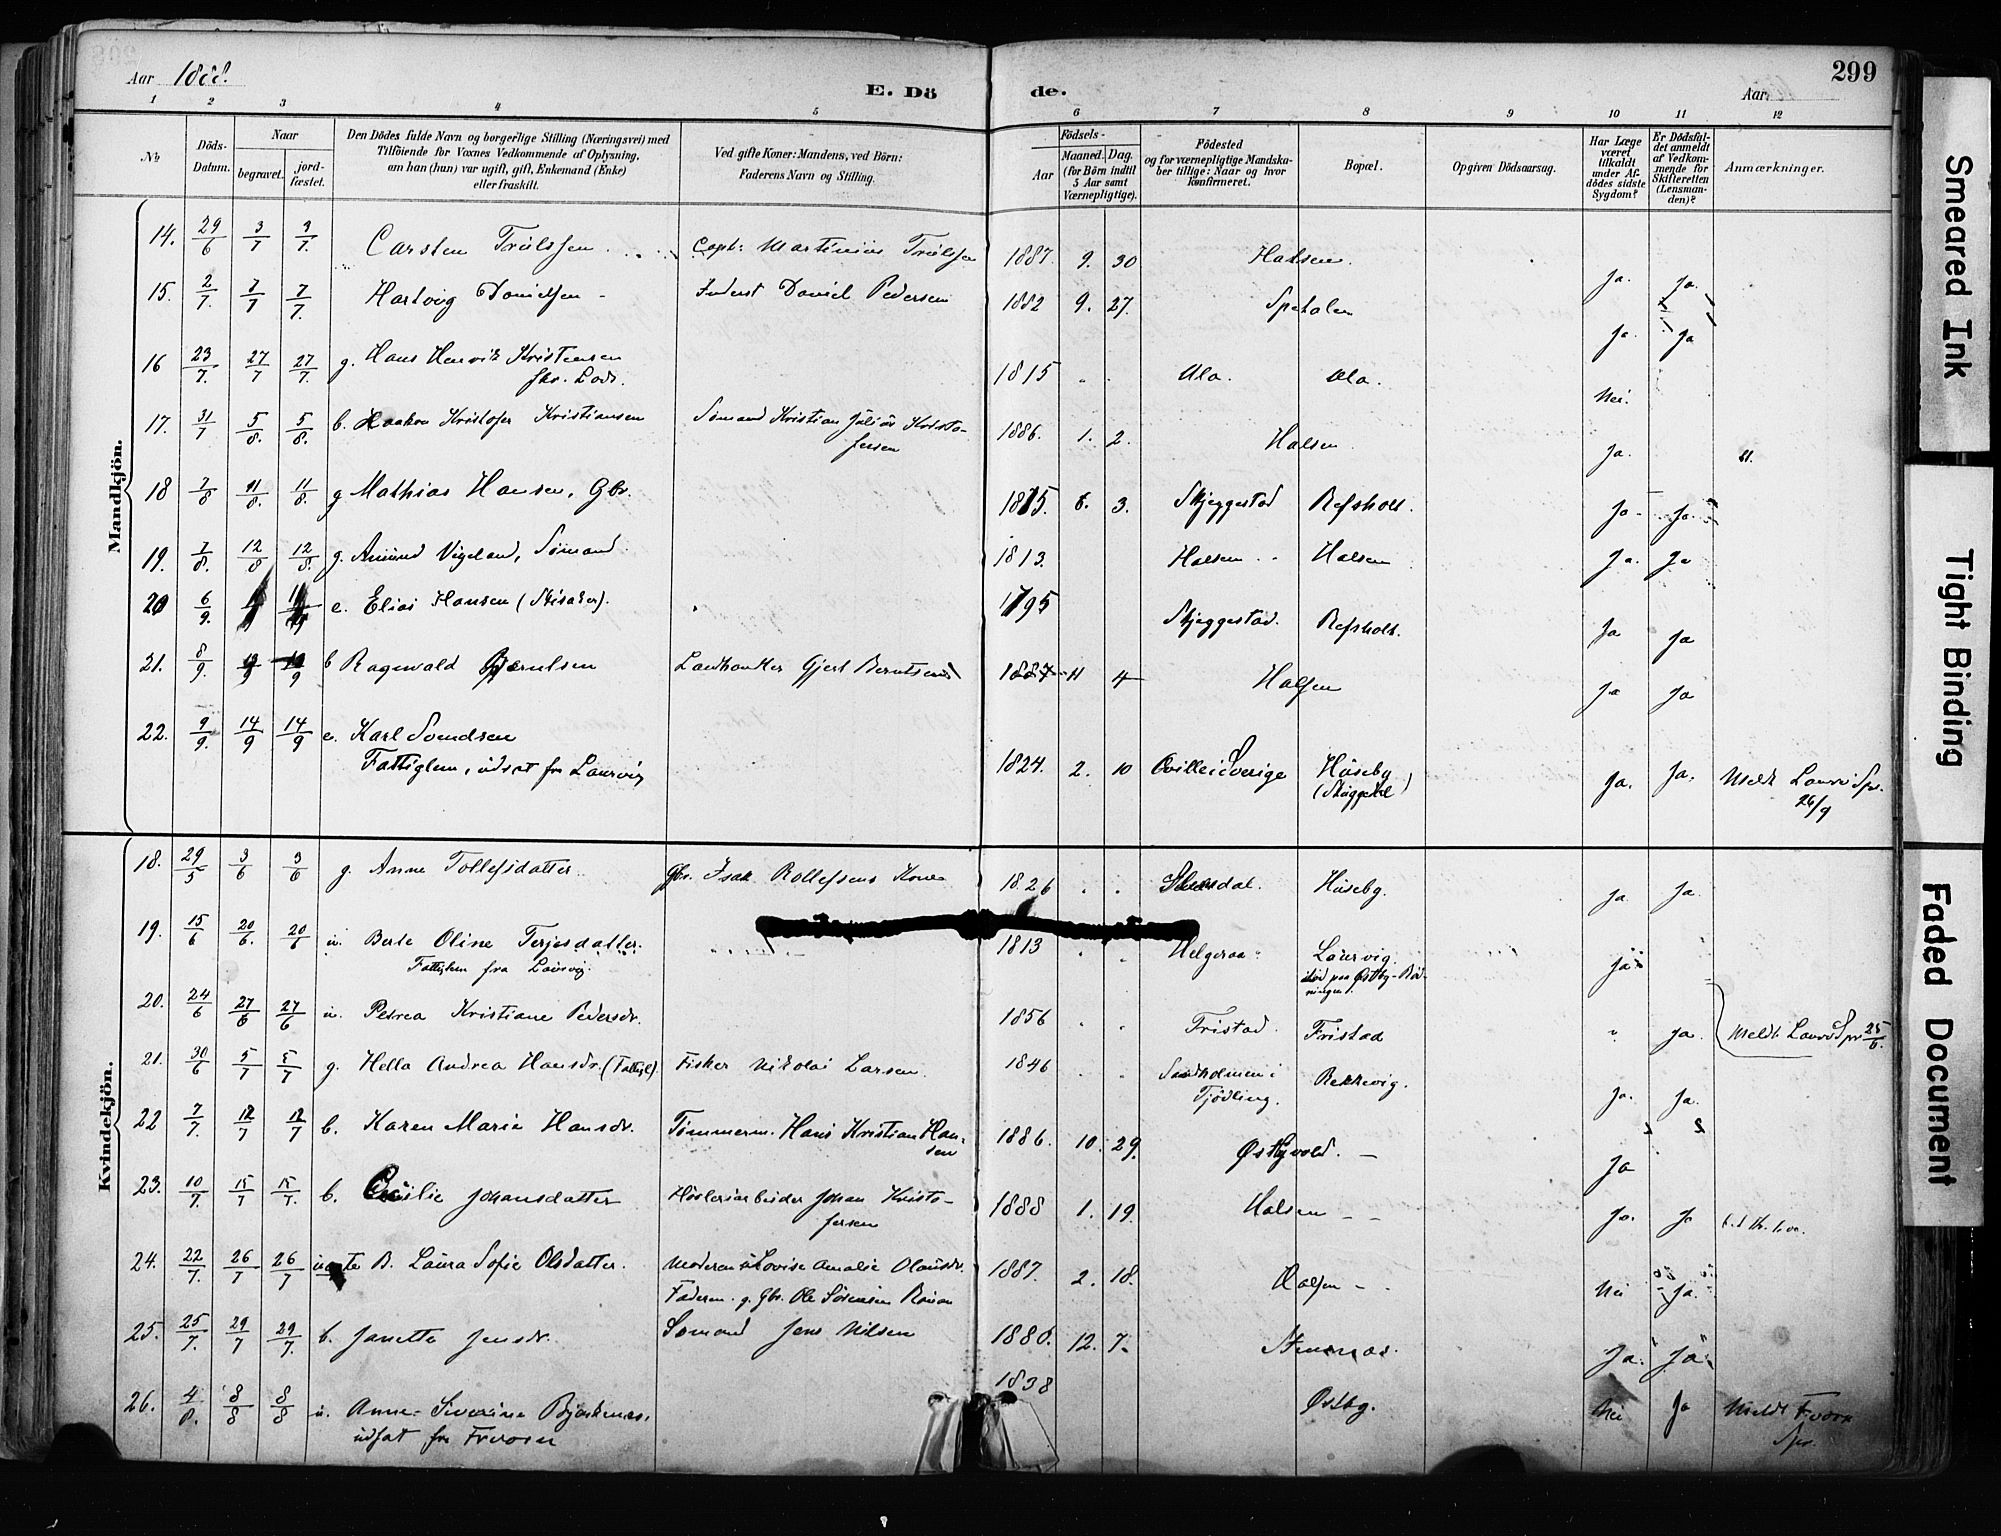 Aar 1888.
E. Döde.
Aar
299
1 2 3 4 5 6 7 8 9 10 11 12
No
Döds-Datum.
Naar
begravet.
jord-fæstet.
Den Dödes fulde Navn og borgerlige Stilling (Næringsvei) med
Tilföiende for Voxnes Vedkommende af Oplysning,
om han (hun) var ugift, gift, Enkemand (Enke)
eller fraskilt.
Ved gifte Koner: Mandens, ved Börn:
Faderens Navn og Stilling.
Födsels-
Aar
Maaned. Dag.
(for Börn indtil
5 Aar samt
Værnepligtige).
Födested
og for værnepligtige Mandska-
ber tillige: Naar og hvor
konfirmeret.
Bopæl.
Opgiven Dödsaarsag.
Har Læge
været
tilkaldt
under Af-
dödes sidste
Sygdom?
Er Dödsfal-
det anmeldt
af Vedkom-
mende for
Skifteretten
(Lensman-
den)?
Anmærkninger.
Mandkjön.
14. 29/6 3/7 9/7. Carsten Trülssen Capt: Martinius Trülssen 1887. 9. 30 Halsen. Ja. Ja.
15. 2/7. 7/7 7/7. Hartvig Danielsen Inderst Daniel Pedersen 1882 9. 27. Spetalen Ja. Ja
16 23/7. 27/7 27/7. g. Hans Henrik Kristensen 1815 Ula. Ula. Nei.
fhv. Lods.
17. 31/7 5/8. 5/8. b. Haakon Kristofer Kristiansen Sømand Kristian Juliüs Kristo- 1886. 1. 2. Halsen Ja.
fersen
18 7/8 11/8. 11/8. g Mathias Hansen, Gbr. 1815. 6. 3. Skjeggestad Refsholt. Ja Ja
19. 7/8. 12/8 12/8. g. Amund Vigeland, Sømand. 1813. Halsen Halsen Ja. Ja
20 6/9. e. Elias Hansen (Skisaker). 1795 Skjeggestad. Refsholt. Ja Ja
21. 8/9. b Ragnvald Gjertsen Landhandler Gjert Berntsen 1887 11 4 Halsen Ja Ja
22. 9/9. 14/9 14/9 e. Karl Svendsen 1824. 2. 10 Qville i Sverige Hüseby Ja. Ja. Meldt Laurv. Spr.
Fattiglem, udsat fr Laurvig (Skiggestd) 26/9
Kvindekjön.
18. 29/5 3/6 3/6 g. Anne Tollefsdatter Gbr. Isak Rollefsens Kone 1826 Hüseby. Ja Ja.
19. 15/6 20/6. 20/6 ü. Berte Oline Terjesdatter. 1813 Helgeraa Laurvig. Ja
Fattiglem fra Laurvig. død paa Østby-
20. 24/6 27/6 27/6 ü. Petrea Kristiane Pedersdr. 1856 Fristad. Fristad " Ja. Meldt Laurv Spr 25/6.
21. 30/6 5/7 5/7 g. Hella Andrea Hansdr. (Fattigl) Fisker Nikolai Larsen 1846 Sandholmen i Rekkevig. Ja. Ja.
Tjödling.
22 7/7. 12/7 12/7 b. Karen Marie Hansdr. Tømmerm. Hans Kristian Han- 1886. 10. 29. Østbyvold. Ja
sen
23. 10/7. 15/7 15/7. b. Cecilie Johansdatter Høvleriarbeider Johan Kristo- 1888 1. 19. Halsen Ja. Ja
fersen
24. 22/7. 26/7 26/7 uægte B. Laura Sofie Olsdatter. Moderen ü Lovise Amalie Olaüsdr. 1887. 2. 18. Halsen Nei Ja.
Faderen. g. Gbr. Ole Sörensen
25. 25/7. 29/7 29/7. b. Janette Jensdr. Sømand Jens Nilsen 1880. 12. 7. Stensnæs. Ja. Ja
26. 4/8. 8/8 8/8 ü. Anne Siverine Bjerkenæs. 1838 Østby. Nei Ja Meldt Fværn
udsat fra Fværn Spr.
Smeared Ink
Tight Binding
Faded Document